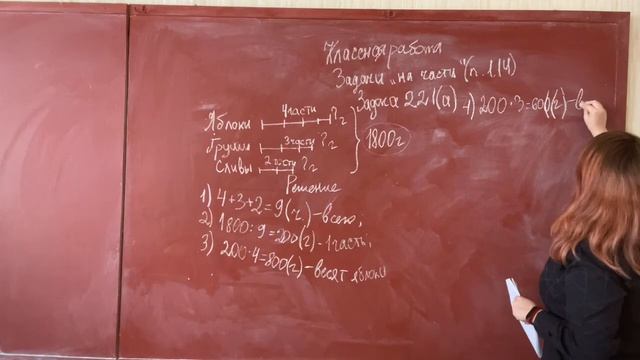 Классная работа
Задачи "на части" (п. 1.14)
Задача 221(а)
4) 200·3=600(г)-в
Яблоки 4 части ? г
Груши 3 части ? г
Сливы 2 части ? г
1800г
Решение
1) 4+3+2=9(ч)-всего;
2) 1800:9=200(г)-1часть;
3) 200·4=800(г)-весят яблоки